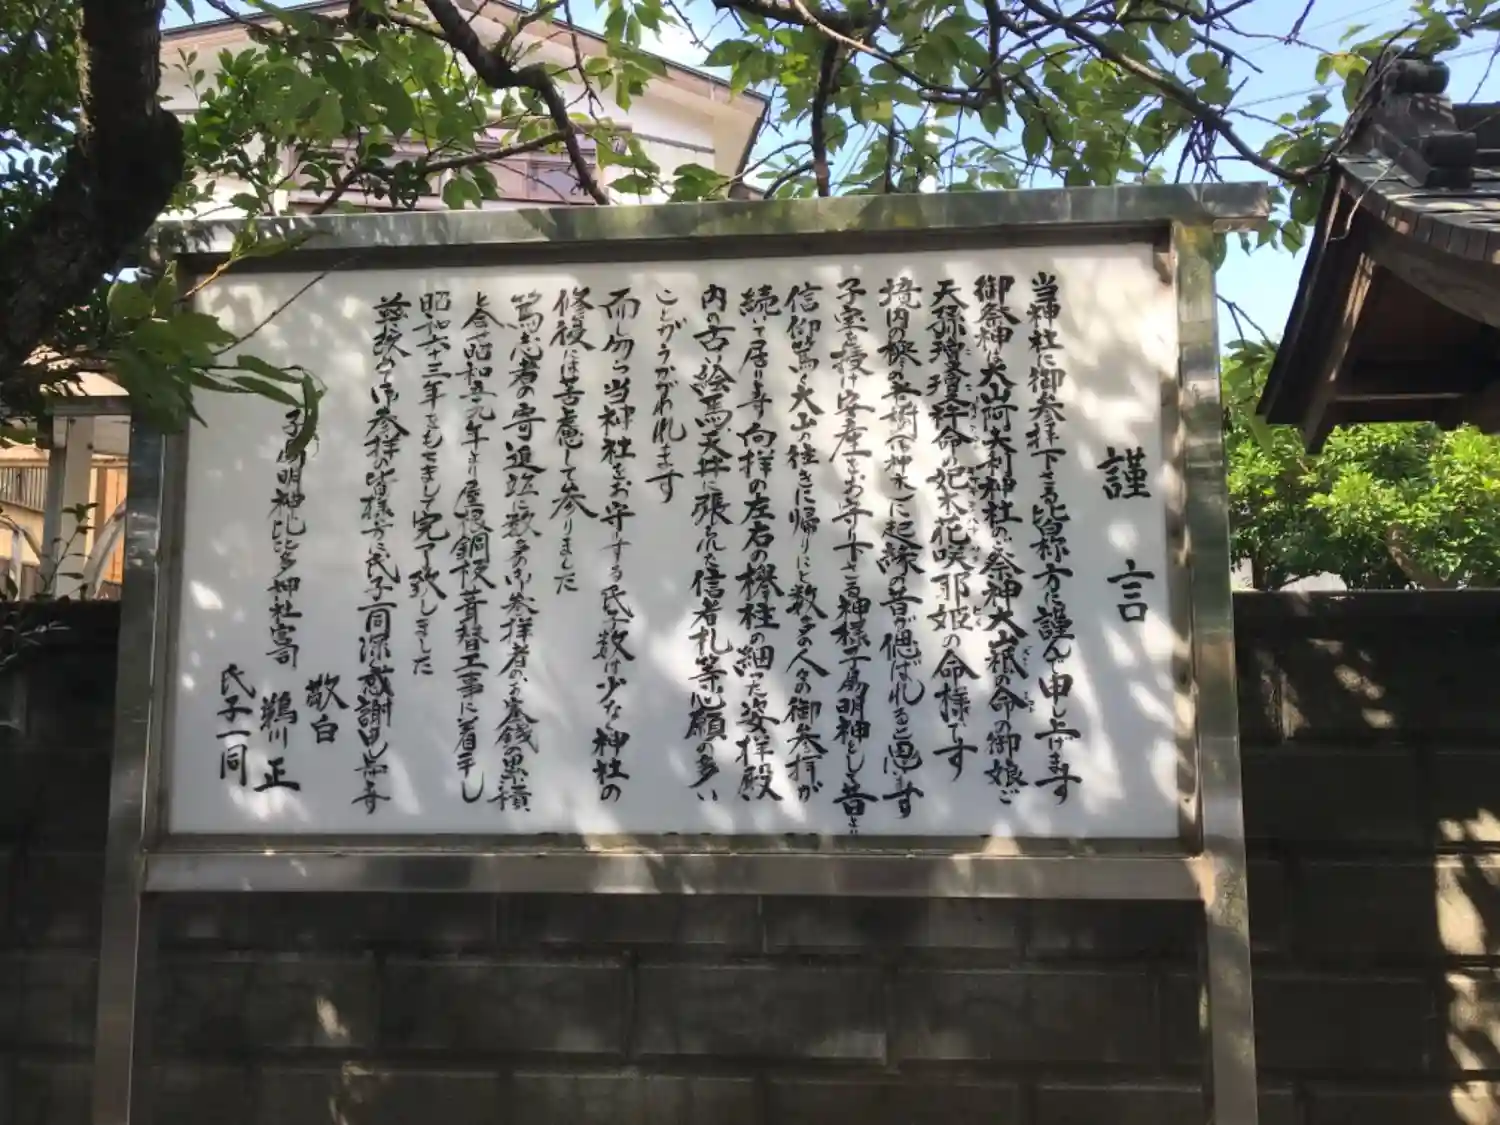 謹言
当神社に御参拝下さる皆称方に謹んで申し上げます
御祭神は大山阿夫利神社の祭神大山祇の命の御娘ご
天孫瓊瓊杵命の妃木花咲耶姫の命様です
境内の欅の老樹(御神木)に起縁の昔が偲ばれると思います
子宝を授け安産をお守り下さる神様子易明神として昔より
信仰篤く大山の往きに帰りにと数多の人々の御参拝が
続いて居ります 向拝の左右の欅柱の細った姿拝殿
内の古い絵馬天井に張られた信者札等心願の多い
ことがうかがわれます
而し乍ら当神社をお守りする氏子数は少な神社の
修復には苦慮して参りました
篤志者の寄進並に数多の御参拝者のお賽銭の累積
と合せ昭和五九年より屋根銅板葺替工事に着手し
昭和六十三年をもちまして完了致しました
茲に改めて御参拝の皆様方に氏子一同深く感謝申し上げます
敬白
子易明神比比多神社宮司 鵜川 正
氏子一同